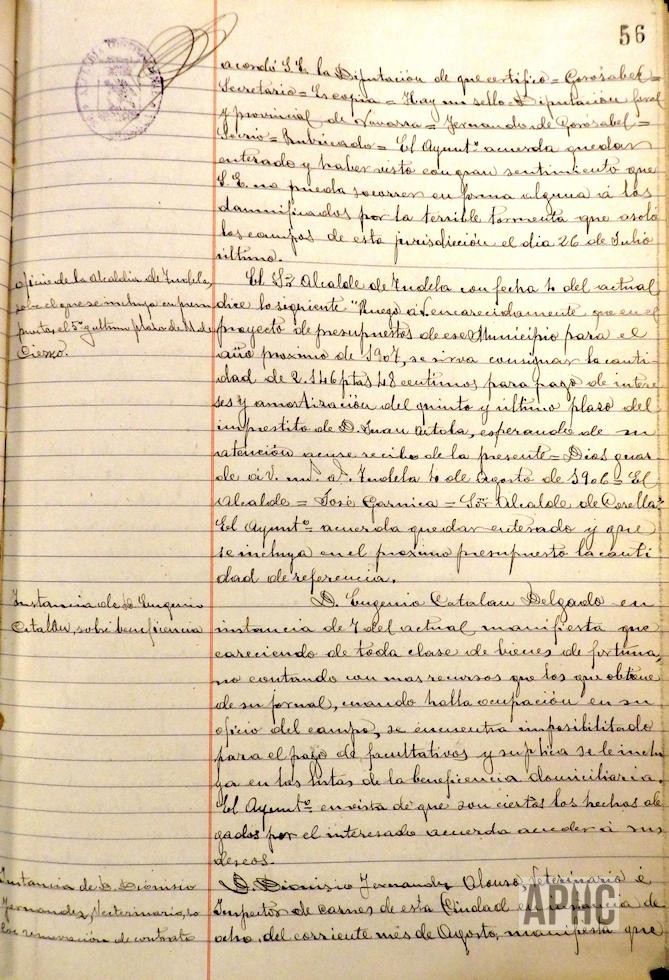 56
acordó S.E. la Diputación de que certifico = Gorosabel =
Secretario = Es copia = Hay un sello = Diputación foral
y provincial de Navarra = Fernando de Gorosabel =
Secrio = Rubricado = El Ayuntº acuerda quedar
enterado y haber visto con gran sentimiento que
S.E. no pueda socorrer en forma alguna á los
damnificados por la terrible tormenta que asoló
los campos de esta jurisdicción el dia 26 de Julio
último.
Oficio de la Alcaldia de Tudela,
sobre el que se incluya en presu
puestos el 5º y ultimo plazo de
Cierzo.
El Sr Alcalde de Tudela con fecha 4 del actual
dice lo siguiente "Ruego á V. encarecidamente que en el
proyecto de presupuestos de ese Municipio para el
año proximo de 1907, se sirva consignar la canti-
dad de 2.146 ptas 48 centimos para pago de intere-
ses y amortización del quinto y último plazo del
impréstito de D. Juan Artola, esperando de su
atención acuse recibo de la presente = Dios guar-
de á V. mº. aº. Tudela 4 de Agosto de 1906 = El
Alcalde = José Garnica = Sor Alcalde de Corella."
El Ayuntº acuerda quedar enterado y que
se incluya en el proximo presupuesto la canti
dad de referencia.
Instancia de D. Eugenio
Catalán, sobre beneficencia
D. Eugenio Catalan Delgado en
instancia de 7 del actual manifiesta que
careciendo de toda clase de bienes de fortuna,
no contando con mas recursos que los que obtiene
de su jornal, cuando halla ocupación en su
oficio del campo, se encuentra imposibilitado
para el pago de facultativos y suplica se le inclu
ya en las listas de la beneficencia domiciliaria.
El Ayuntº en vista de que son ciertos los hechos ale
gados por el interesado acuerda acceder á sus
deseos.
Instancia de D. Dionisio
Fernandez, Veterinario, so
bre renovación de contrato
D. Dionisio Fernandez Alonso, Veterinario é
Inspector de carnes de esta Ciudad en instancia de
ocho del corriente mes de Agosto, manifiesta que
APHC